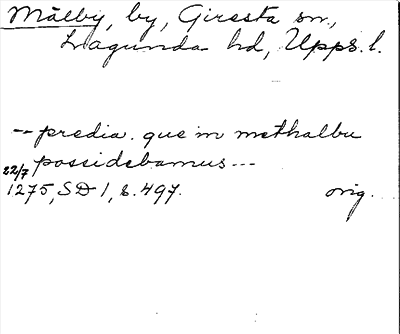 Målby, by, Giresta sn.,
Lagunda hd, Upps. l.
-- predia. que in methalbu
possidebamus ---
22/7
1275, SD 1, s. 497. orig.